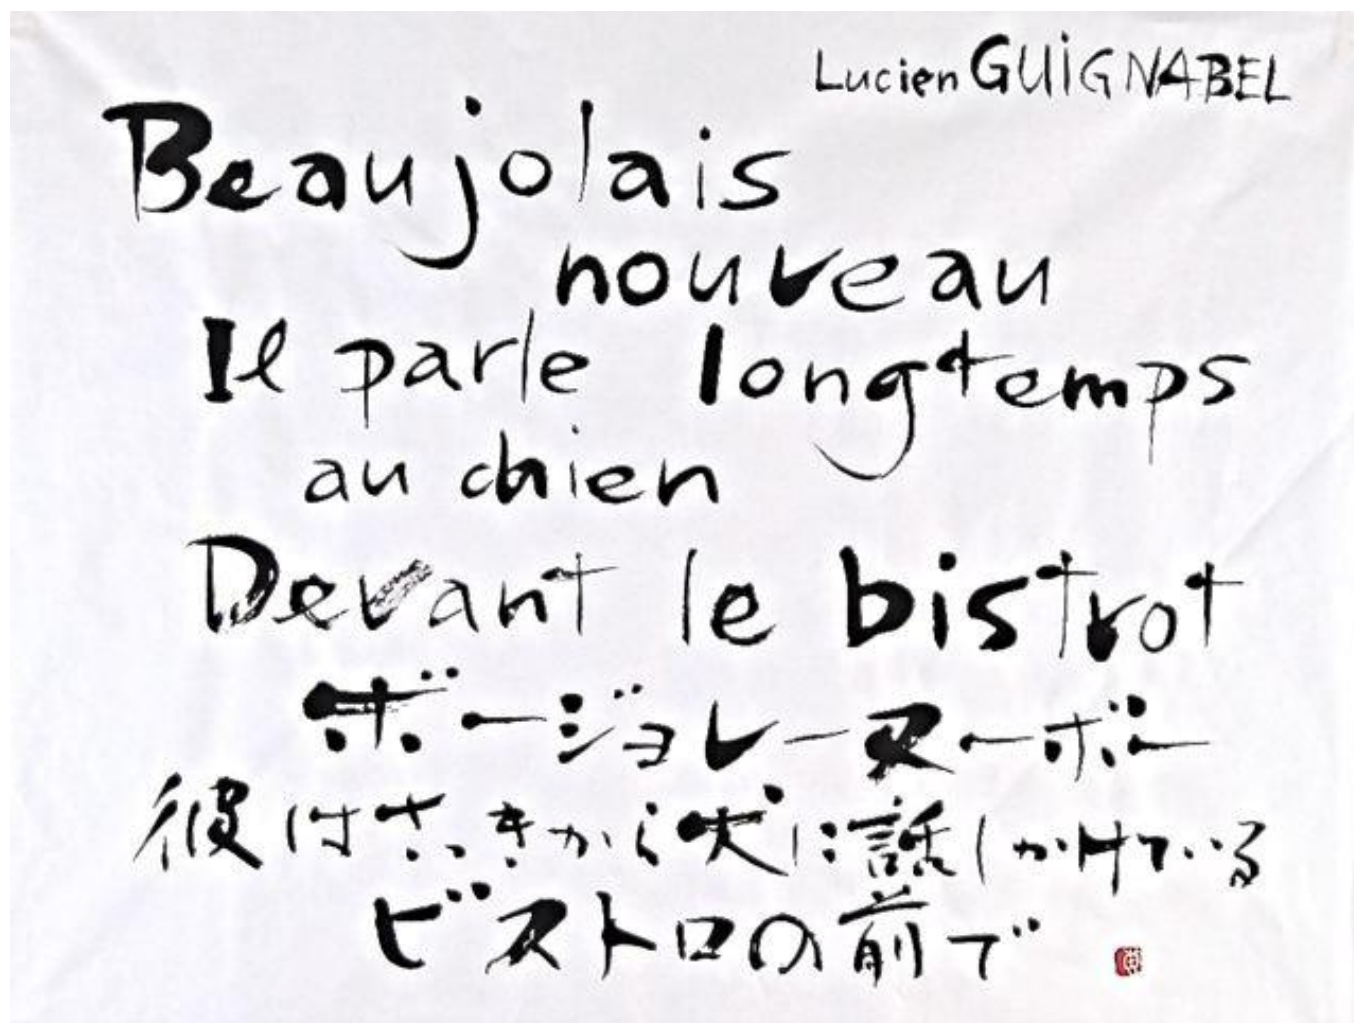 Lucien GUiGNABEL
Beaujolais
nouveau
Il parle longtemps
au chien
Devant le bistrot
ボージョレーヌーボー
彼はさっきから犬に話しかけている
ビストロの前で